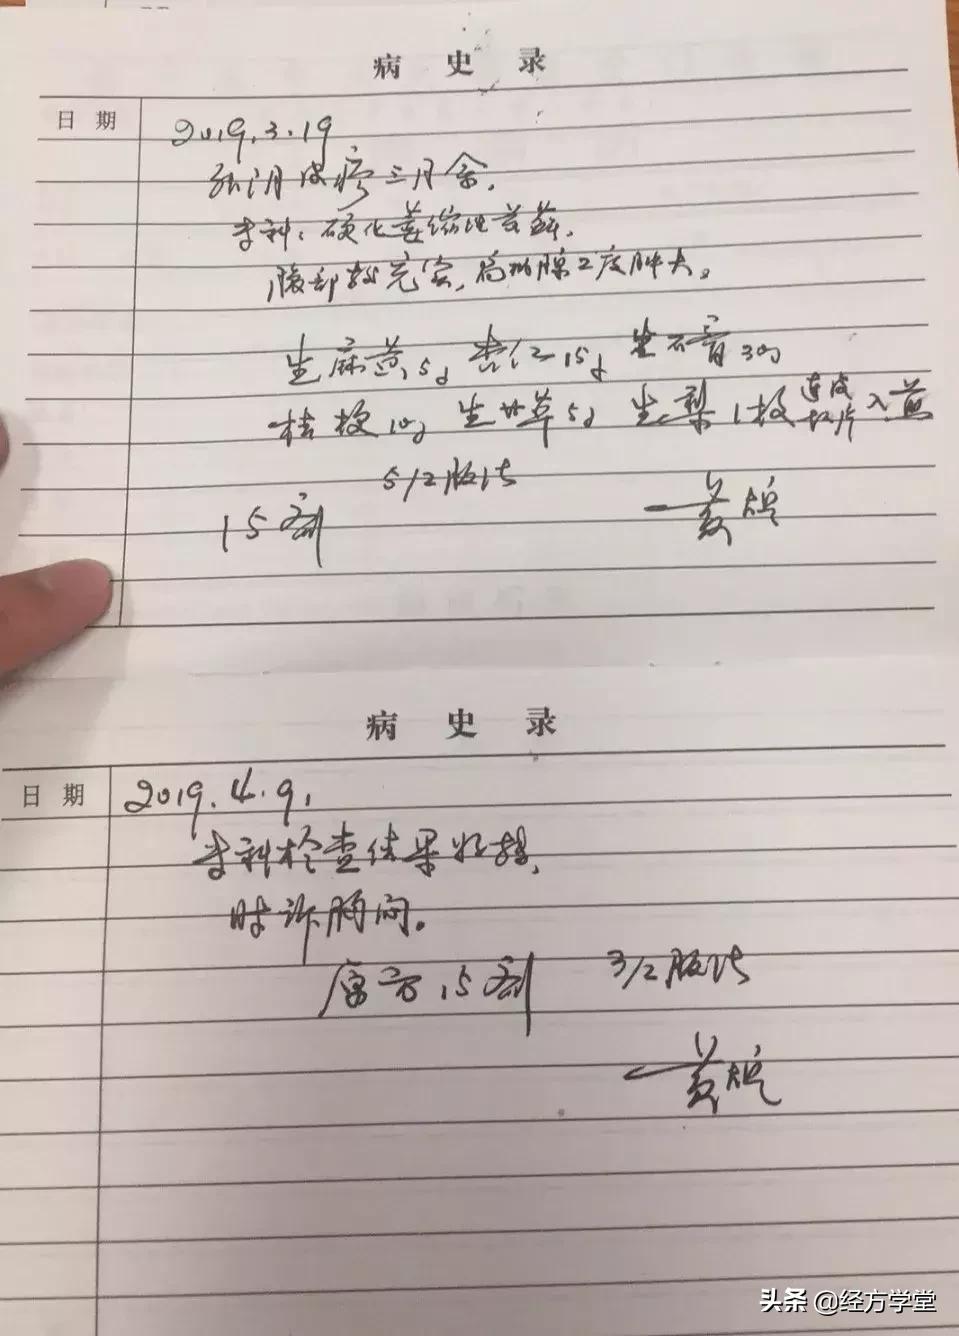 病 史 录
日 期
2019.3.19
外阴皮疹三月余.
专科: 硬化萎缩性苔藓.
腹部较充实, 扁桃腺2度肿大。
生麻黄5g 杏仁15g 生石膏30g
桔梗10g 生甘草5g 生梨1枚 连皮切片 入煎
5/2服法
15剂 黄煌
病 史 录
日 期
2019.4.9.
专科检查结果好转,
时诉胸闷。
原方15剂 3/2服法
黄煌
头条 @经方学堂